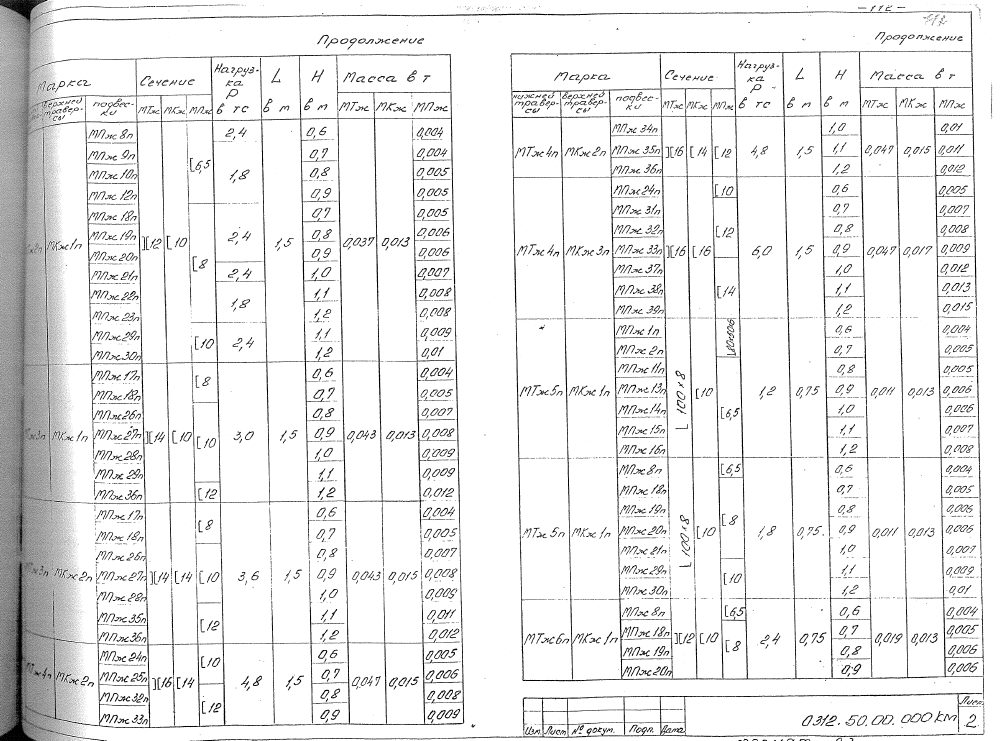 - 112 -
112
Продолжение
Марка Сечение Нагрузка Р в тс L в м H в м Масса в т
верхней траверсы подвески МТж МКж МПж МТж МКж МПж
МПж 8п 2,4 0,6 0,004
МПж 9п 0,7 0,004
МПж 10п [6,5 1,8 0,8 0,005
МПж 12п 0,9 0,005
МПж 18п 0,7 0,005
МКж1п МПж 19п ][12 [10 2,4 1,5 0,8 0,037 0,013 0,006
МПж 20п [8 0,9 0,006
МПж 21п 2,4 1,0 0,007
МПж 22п 1,8 1,1 0,008
МПж 23п 1,2 0,008
МПж 29п [10 2,4 1,1 0,009
МПж 30п 1,2 0,01
МПж 17п [8 0,6 0,004
МПж 18п 0,7 0,005
МПж 26п 0,8 0,007
МКж1п МПж 27п ][14 [10 [10 3,0 1,5 0,9 0,043 0,013 0,008
МПж 28п 1,0 0,009
МПж 29п 1,1 0,009
МПж 36п [12 1,2 0,012
МПж 17п [8 0,6 0,004
МПж 18п 0,7 0,005
МПж 26п 0,8 0,007
МКж2п МПж 27п ][14 [14 [10 3,6 1,5 0,9 0,043 0,015 0,008
МПж 28п 1,0 0,009
МПж 35п [12 1,1 0,011
МПж 36п 1,2 0,012
МПж 24п [10 0,6 0,005
МТж4п МКж2п МПж 25п ][16 [14 4,8 1,5 0,7 0,047 0,015 0,006
МПж 32п [12 0,8 0,008
МПж 33п 0,9 0,009
Продолжение
Марка Сечение Нагрузка Р в тс L в м H в м Масса в т
нижней траверсы верхней траверсы подвески МТж МКж МПж МТж МКж МПж
МПж 34п 1,0 0,01
МТж4п МКж2п МПж 35п ][16 [14 [12 4,8 1,5 1,1 0,047 0,015 0,011
МПж 36п 1,2 0,012
МПж 24п [10 0,6 0,005
МПж 31п 0,7 0,007
МПж 32п [12 0,8 0,008
МТж4п МКж3п МПж 33п ][16 [16 6,0 1,5 0,9 0,047 0,017 0,009
МПж 37п 1,0 0,012
МПж 38п [14 1,1 0,013
МПж 39п 1,2 0,015
МПж 1п 0,6 0,004
МПж 2п 0,7 0,005
МПж 11п 0,8 0,005
МТж5п МКж1п МПж 13п L 100×8 [10 1,2 0,75 0,9 0,011 0,013 0,006
МПж 14п [6,5 1,0 0,006
МПж 15п 1,1 0,007
МПж 16п 1,2 0,008
МПж 8п [6,5 0,6 0,004
МПж 18п 0,7 0,005
МПж 19п 0,8 0,006
МТж5п МКж1п МПж 20п L 100×8 [10 [8 1,8 0,75 0,9 0,011 0,013 0,006
МПж 21п 1,0 0,007
МПж 29п [10 1,1 0,009
МПж 30п 1,2 0,01
МПж 8п [6,5 0,6 0,004
МТж6п МКж1п МПж 18п ][12 [10 2,4 0,75 0,7 0,019 0,013 0,005
МПж 19п [8 0,8 0,006
МПж 20п 0,9 0,006
Изм. Лист № докум. Подп. Дата
0312.50.00.000КМ
Лист 2